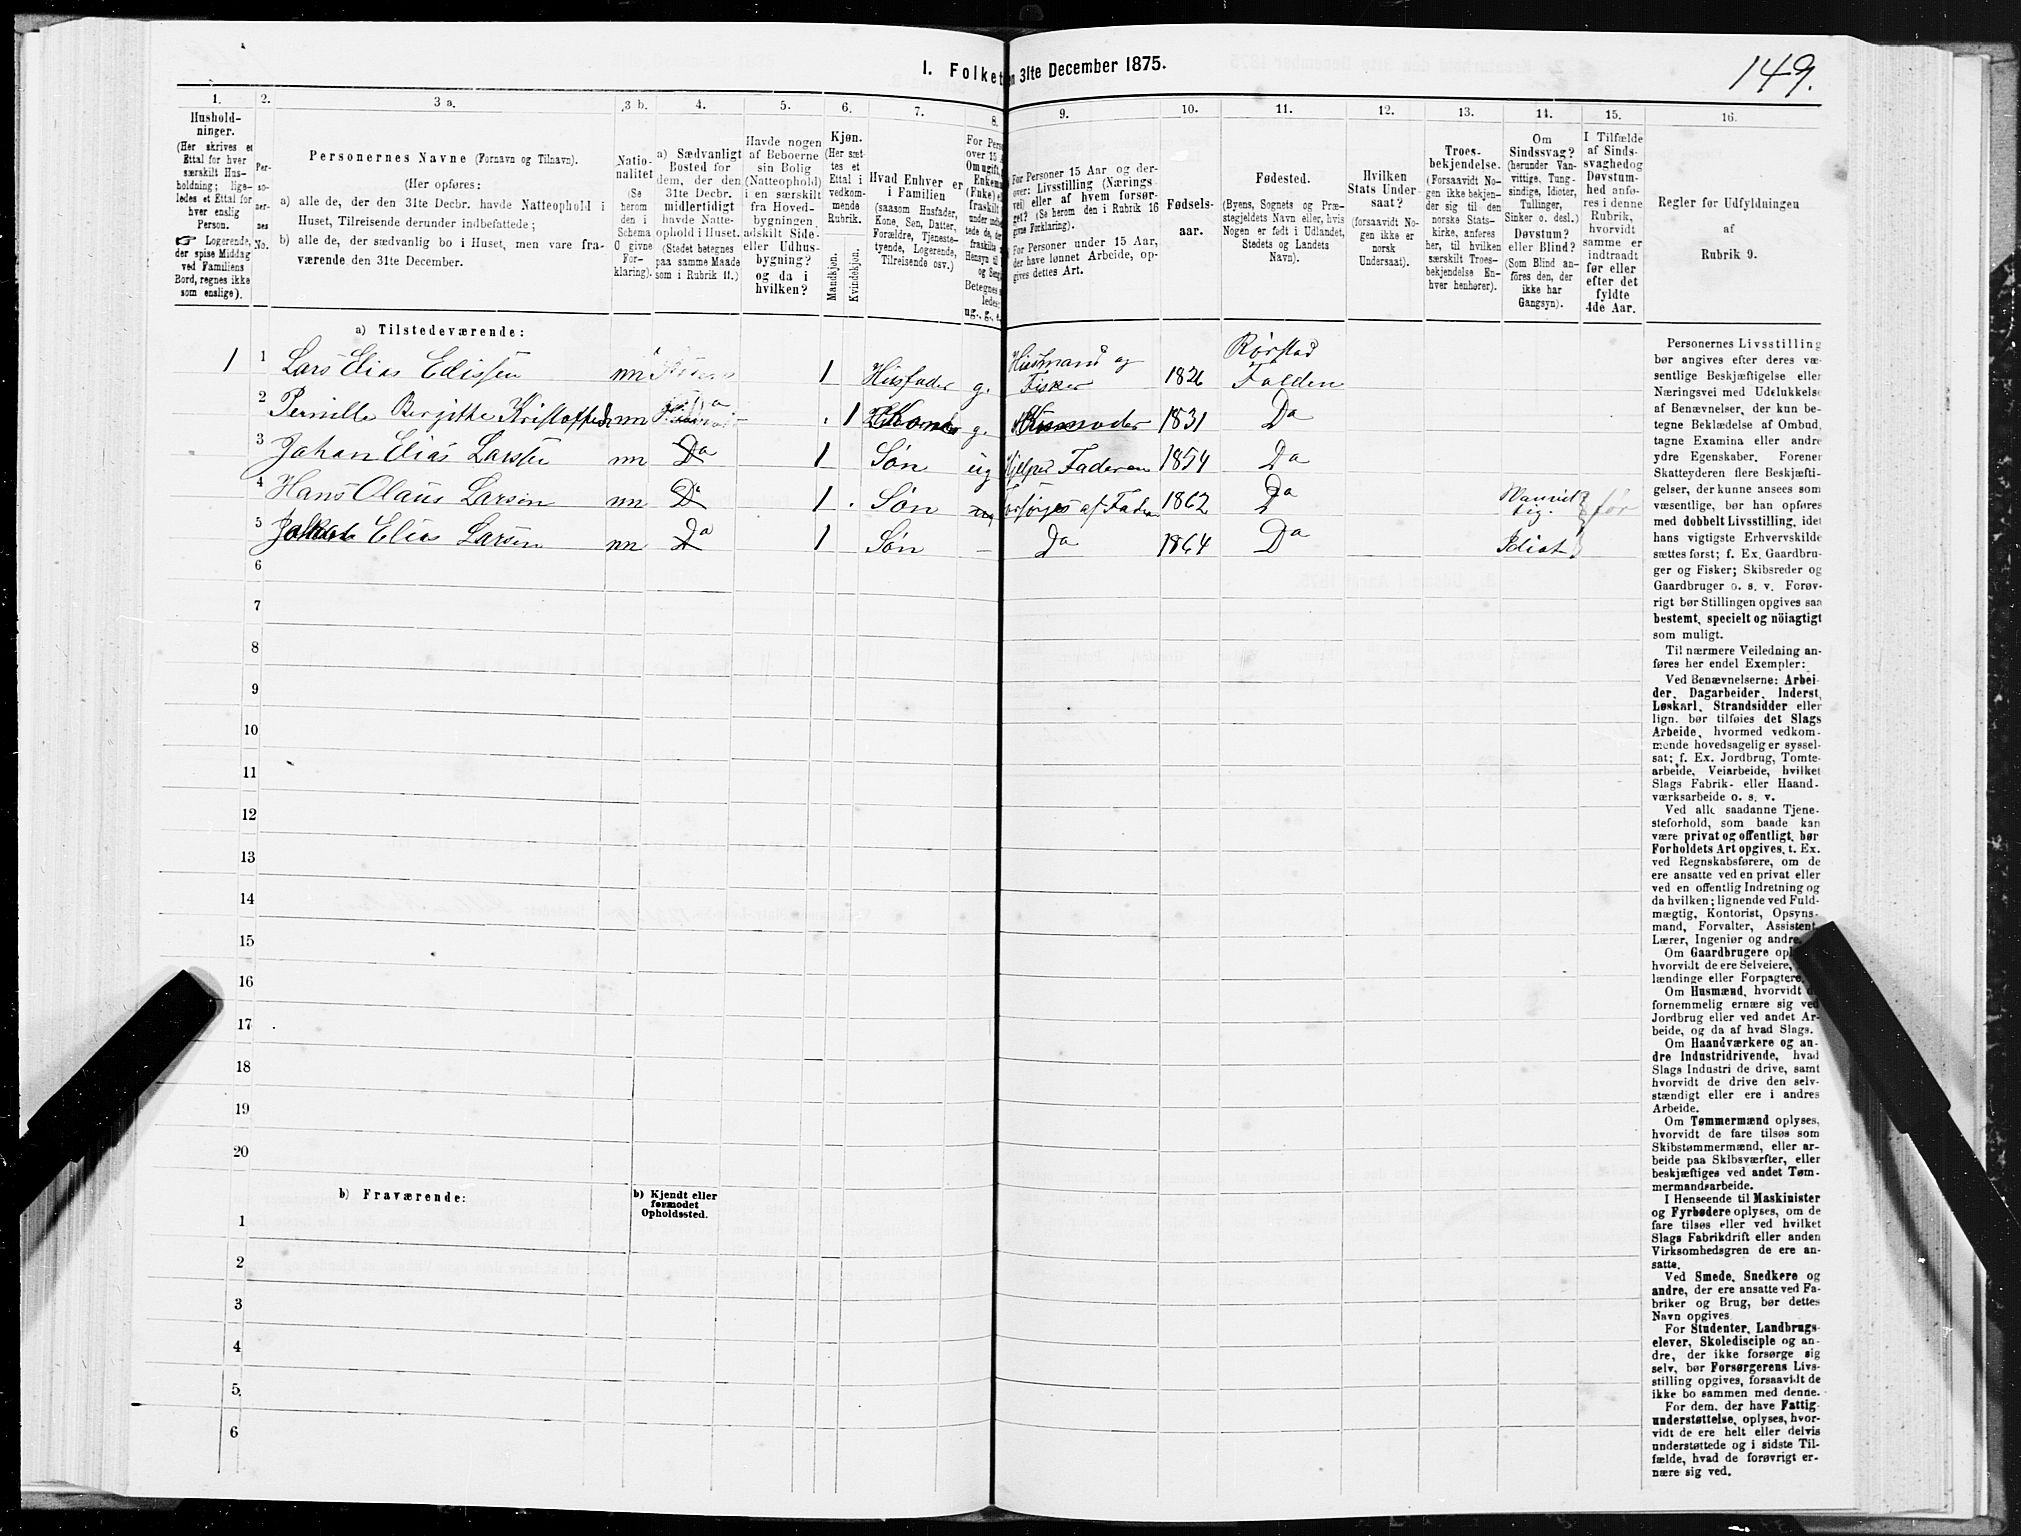 I. Folket en 31te December 1875.
149.
1. 2. 3 a. 3 b. 4. 5. 6. 7. 8. 9. 10. 11. 12. 13. 14. 15. 16.
Hushold-
ninger.
(Her skrives et
Ettal for hver
særskilt Hus-
holdning; lige-
ledes et Ettal for
hver enslig
Person.
☞ Logerende,
der spise Middag
ved Familiens
Bord, regnes ikke
som enslige).
Per-
so-
ner-
nes
No.
Personernes Navne (Fornavn og Tilnavn).
(Her opføres:
a) alle de, der den 31te Decbr. havde Natteophold i
Huset, Tilreisende derunder indbefattede;
b) alle de, der sædvanlig bo i Huset, men vare fra-
værende den 31te December.
Natio-
nalitet
(Se
herom
den i
Schema
O givne
For-
klaring).
a) Sædvanligt
Bosted for
dem, der den
31te Decbr.
midlertidigt
havde Natte-
ophold i Huset.
(Stedet betegnes
paa samme Maade
som i Rubrik 11.)
Havde nogen
af Beboerne
sin Bolig
(Natteophold)
i en særskilt
fra Hoved-
bygningen
adskilt Side-
eller Udhus-
bygning?
og da i
hvilken?
Kjøn.
(Her sæt-
tes et
Ettal i
vedkom-
mende
Rubrik.
Mandkjøn.
Kvindekjøn.
Hvad Enhver er
i Familien
(saasom Husfader,
Kone, Søn, Datter,
Forældre, Tjeneste-
tyende, Logerende,
Tilreisende osv.)
For Pers
over 15
Om ugift,
Enkem
(Fuke) e
fraskilt
under indt
tede de, der
fraskilte
Hensyn til
og Seng
Betegnes s
ledes:
ug., g., e.
For Personer 15 Aar og der-
over: Livsstilling (Nærings-
vei) eller af hvem forsør-
get? (Se herom den i Rubrik 16
givne Forklaring).
For Personer under 15 Aar,
der have lønnet Arbeide, op-
gives dettes Art.
Fødsels-
aar.
Fødested.
(Byens, Sognets og Præ-
stegjeldets Navn eller, hvis
Nogen er født i Udlandet,
Stedets og Landets
Navn).
Hvilken
Stats Under-
saat?
(forsaavidt No-
gen ikke er
norsk
Undersaat).
Troes-
bekjendelse.
(Forsaavidt No-
gen ikke bekjen-
der sig til den
norske Stats-
kirke, anføres
her, til hvilken
særskilt Troes-
bekjendelse En-
hver henhører).
Om
Sindssvag?
(herunder Van-
vittige, Tung-
sindige, Idioter,
Tullinger,
Sinker o. desl.)
Døvstum?
eller Blind?
(Som Blind an-
føres den, der
ikke har
Gangsyn).
I Tilfælde
af Sinds-
svaghed og
Døvstum-
hed anfø-
res i denne
Rubrik,
hvorvidt
samme er
indtraadt
før eller
efter det
fyldte
4de Aar.
Regler for Udfyldningen
af
Rubrik 9.
a) Tilstedeværende:
1 1 Lars Elias Edissen nn 1 Husfader g. Husmand og Fisker 1826 Rørstad Folden
2 Pernille Bergitte Kristoffersd nn Da 1 Kone g. 1831 Da
3 Johan Elias Larsen nn Da 1 Søn ug Hjelper Faderen 1854 Da
4 Hans Olaus Larsen nn Da 1 Søn forsørges af Fader 1862 Da Vanvittig. før
5 Elias Larsen nn Da 1 Søn – Da 1864 Da Idiot
6
7
8
9
10
11
12
13
14
15
16
17
18
19
20
b) Fraværende:
b) Kjendt eller
formodet
Opholdssted.
1
2
3
4
5
6
Personernes Livsstilling
bør angives efter deres væ-
sentlige Beskjæftigelse eller
Næringsvei med Udelukkelse
af Benævnelser, der kun be-
tegne Beklædelse af Ombud,
tagne Examina eller andre
ydre Egenskaber. Forener
Skatteyderen flere Beskjæfti-
gelser, der kunne ansees som
væsentlige, bør han opføres
med dobbelt Livsstilling, idet
hans vigtigste Erhvervskilde
sættes først; f. Ex. Gaardbru-
ger og Fisker; Skibsreder og
Gaardbruger o. s. v. Forøv-
rigt bør Stillingen opgives saa
bestemt, specielt og nöiagtigt
som muligt.
Til nærmere Veiledning an-
føres her endel Exempler:
Ved Benævnelserne: Arbei-
der, Dagarbeider, Inderst,
Løskarl, Strandsidder eller
lign. bør tilføies det Slags
Arbeide, hvormed vedkom-
mende hovedsagelig er syssel-
sat; f. Ex. Jordbrug, Tomte-
arbeide, Veiarbeide, hvilket
Slags Fabrik- eller Haand-
værksarbeide o. s. v.
Ved alle saadanne Tjene-
steforhold, som baade kan
være privat og offentligt, bør
Forholdets Art opgives, t. Ex.
ved Regnskabsførere, om de
ere ansatte ved en privat eller
ved en offentlig Indretning og
da hvilken; lignende ved Fuld-
mægtig, Kontorist, Opsyns-
mand, Forvalter, Assistent,
Lærer, Ingeniør og andre.
Om Gaardbrugere opl
hvorvidt de ere Selveiere,
lændinge eller Forpagtere.
Om Husmænd, hvorvidt d
fornemmelig ernære sig ved
Jordbrug eller ved andet Ar-
beide, og da af hvad Slags.
Om Haandværkere og an-
dre Industridrivende, hvad
Slags Industri de drive, samt
hvorvidt de drive den selv-
stændigt eller ere i andres
Arbeide.
Om Tømmermænd oplyses,
hvorvidt de fare tilsøs som
Skibstømmermænd, eller ar-
beide paa Skibsværfter, eller
beskjæftiges ved andet Tøm-
mermandsarbeide.
I Henseende til Maskinister
og Fyrbødere oplyses, om de
fare tilsøs eller ved hvilket
Slags Fabrikdrift eller anden
Virksomhedsgren de ere an-
satte.
Ved Smede, Snedkere og
andre, der ere ansatte ved Fa-
briker og Brug, bør dettes
Navn opgives
For Studenter, Landbrugs-
elever, Skoledisciple og an-
dre, der ikke forsørge sig
selv, bør Forsørgerens Livs-
stilling opgives, forsaavidt de
ikke bo sammen med denne.
For dem, der have Fattig-
understøttelse, oplyses, hvor-
vidt de ere helt eller delvis
understøttede og i sidste Til-
fælde, hvad de forøvrigt er-
nære sig ved.